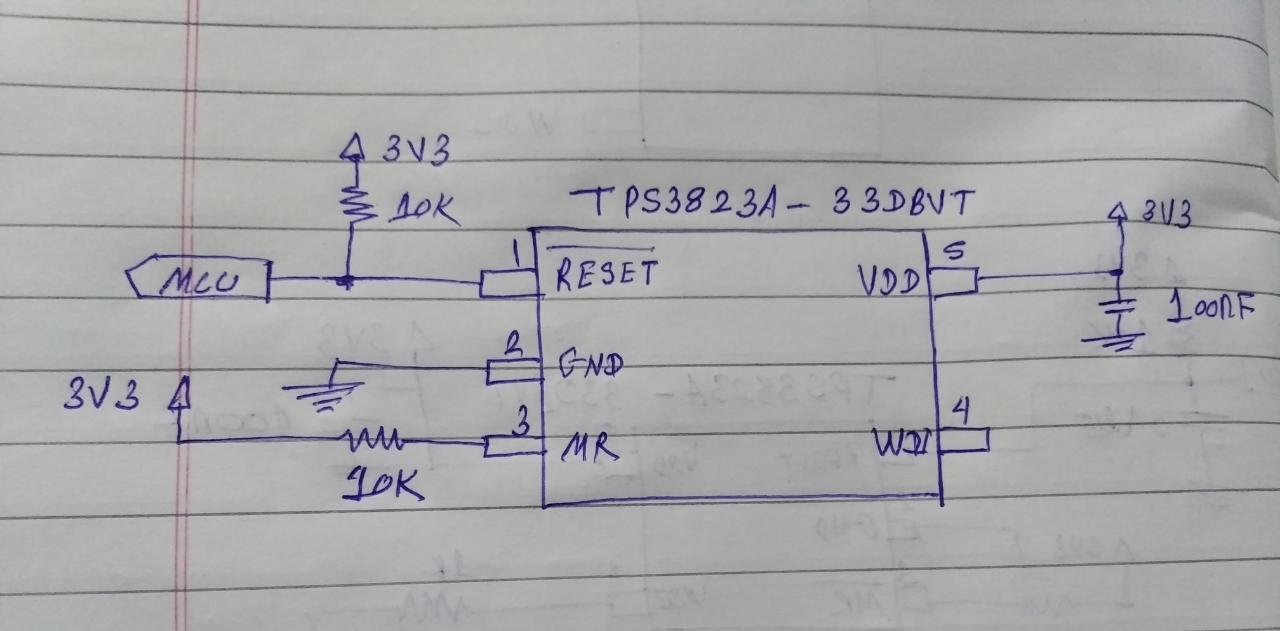 3V3
10K
TPS3823A-33DBVT
3V3
1
5
MCU
RESET
VDD
100nF
2
GND
3V3
3
4
MR
WDI
10K